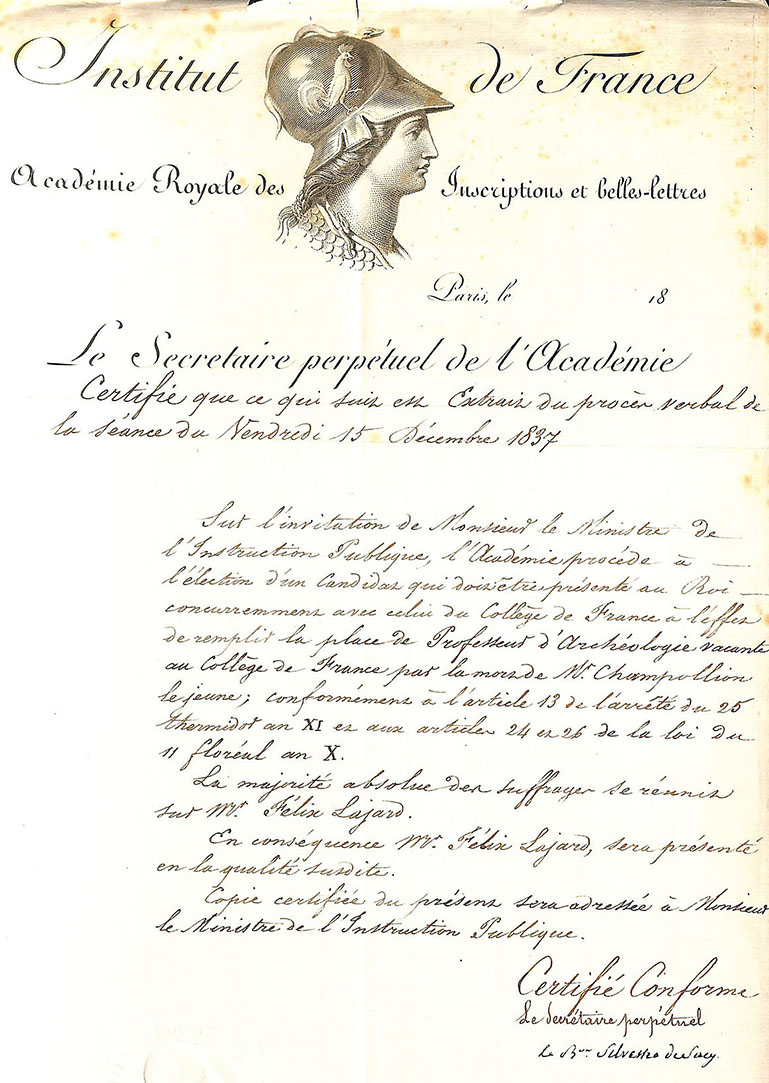 Institut de France
Académie Royale des Inscriptions et belles-lettres
Paris, le 18
Le Secretaire perpétuel de l'Académie
Certifie que ce qui suit est Extrait du procès verbal de
la séance du Vendredi 15 Décembre 1837
Sur l'invitation de Monsieur le Ministre de
l'Instruction Publique, l'Académie procède à
l'élection d'un Candidat qui doit être présenté au Roi
concurremment avec celui du Collège de France à l'effet
de remplir la place de Professeur d'Archéologie vacante
au Collège de France par la mort de Mr. Champollion
le jeune; conformément à l'article 13 de l'arrêté du 25
thermidor an XI et aux articles 24 et 26 de la loi du
11 floréal an X.
La majorité absolue des suffrages se réunit
sur Mr. Félix Lajard.
En conséquence Mr. Félix Lajard, sera présenté
en la qualité susdite.
Copie certifiée du présent sera adressée à Monsieur
le Ministre de l'Instruction Publique.
Certifié Conforme
Le Secrétaire perpétuel
Le Bon Silvestre de Sacy.